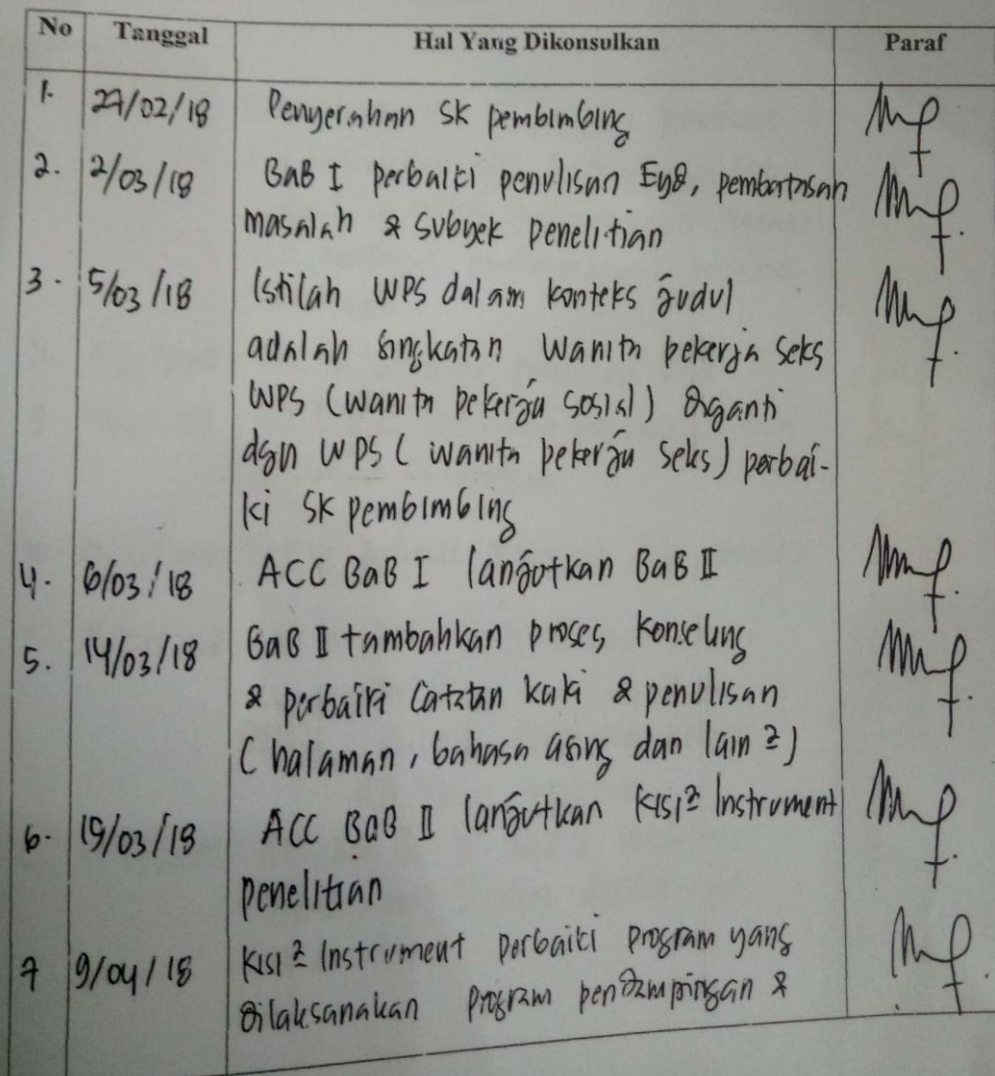 No Tanggal Hal Yang Dikonsulkan Paraf
1. 27/02/18 Penyerahan SK pembimbing
2. 2/03/18 BAB I perbaiki penulisan EyD, pembatasan
masalah & subyek penelitian
3. 5/03/18 Istilah WPS dalam konteks judul
adalah singkatan wanita pekerja seks
WPS (wanita pekerja sosial) diganti
dgn WPS (wanita pekerja seks) perbai-
ki SK pembimbing
4. 6/03/18 ACC BaB I lanjutkan BaB II
5. 14/03/18 BaB II tambahkan proses konseling
& perbaiki catatan kaki & penulisan
(halaman, bahasa asing dan lain 2)
6. 19/03/18 ACC BaB II lanjutkan kisi2 Instrument
penelitian
7 9/04/18 Kisi2 Instrument perbaiki program yang
dilaksanakan program pendampingan &